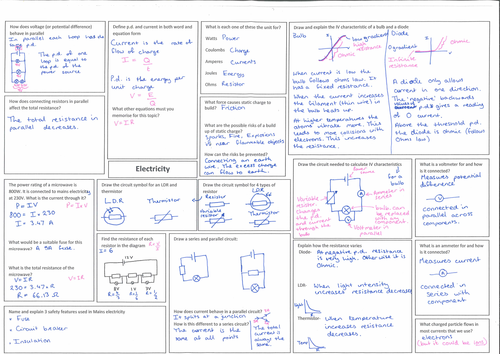 How does voltage (or potential difference)
behave in parallel
In parallel each loop
The p.d. of
one loop is equal to
the p.d of the
power source
How does connecting resistors in parallel
affect the total resistance?
The total resistance in
parallel decreases.
The power rating of a microwave is
800W. It is connected to mains electricity
at 230V. What is the current through it?
P=IV
800 = I×230
I = 3.47 A
What would be a suitable fuse for this
microwave?
A 5A fuse
What is the total resistance of the
microwave?
V=IR
230 = 3.47×R
Name and explain 3 safety features used in Mains electricity
Fuse
Circuit breaker
Insulation
Define p.d. and current in both word and
equation form
Current is the rate of
flow of charge
P.d. is the energy per
unit charge
What other equations must you
memorise for this topic?
V=IR
Electricity
Draw the circuit symbol for an LDR and
thermistor
LDR
Thermistor
Find the resistance of each
resistor in the diagram
What is each of these the unit for?
Watts Power
Coulombs Charge
Amperes Current
Joules Energy
Ohms Resistor
What force causes static charge to
build? Friction
What are the possible risks of a build
up of static charge?
Sparks, Fire, Explosions
near flammable objects
How can the risks be prevented?
Connecting an earth
wire. The excess charge
can flow to earth.
Draw the circuit symbol for 4 types of
resistor
Resistor
LDR
Variable
resistor
Thermistor
Draw a series and parallel circuit:
How does current behave in a parallel circuit?
It splits at a junction
How is this different to a series circuit?
The current is the
same at all points
Draw and explain the IV characteristic of a bulb and a diode
Bulb
low gradient
high
resistance
Ohmic
Diode
0 gradient
Infinite
resistance
Ohmic
When current is low the
bulb follows ohms law. It
has a fixed resistance.
When the current increases
the filament (thin wire) in
the bulb heats up.
At higher temperatures the
atoms vibrate more. This
leads to more collisions with
electrons. This increases
the resistance.
A diode only allows
current in one direction.
The negative backwards
p.d gives a reading
of 0 current.
Above the threshold p.d.
the diode is ohmic (follows
Ohms law)
Draw the circuit needed to calculate IV characteristics
for a
bulb
Variable
resistor
Change
the p.d.
and current
through the
bulb
Ammeter in
series
bulb can be
replaced with
any
component
Voltmeter in
parallel
Explain how the resistance varies
Diode:
At negative p.d. resistance
is very high. Otherwise it is
Ohmic.
LDR:
When light intensity
increases resistance decreases.
Light
Thermistor:
When temperature
increases resistance
decreases.
What is a voltmeter for and how
is it connected?
Measures potential
difference
connected in
parallel across
components.
What is an ammeter for and how
is it connected?
Measures current
connected in
Series with
component
What charged particle flows in
most currents that we use?
electrons
(but it could be ions)